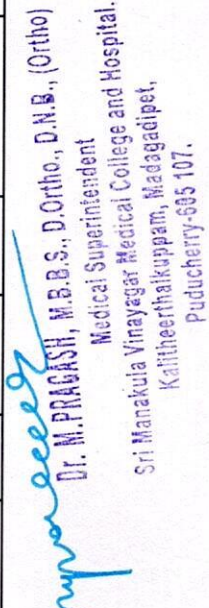 Dr. M.PRAGASH, M.B.B.S., D.Ortho., D.N.B., (Ortho)
Medical Superintendent
Sri Manakula Vinayagar Medical College and Hospital.
Kalitheerthalkuppam, Madagadipet,
Puducherry-605 107.